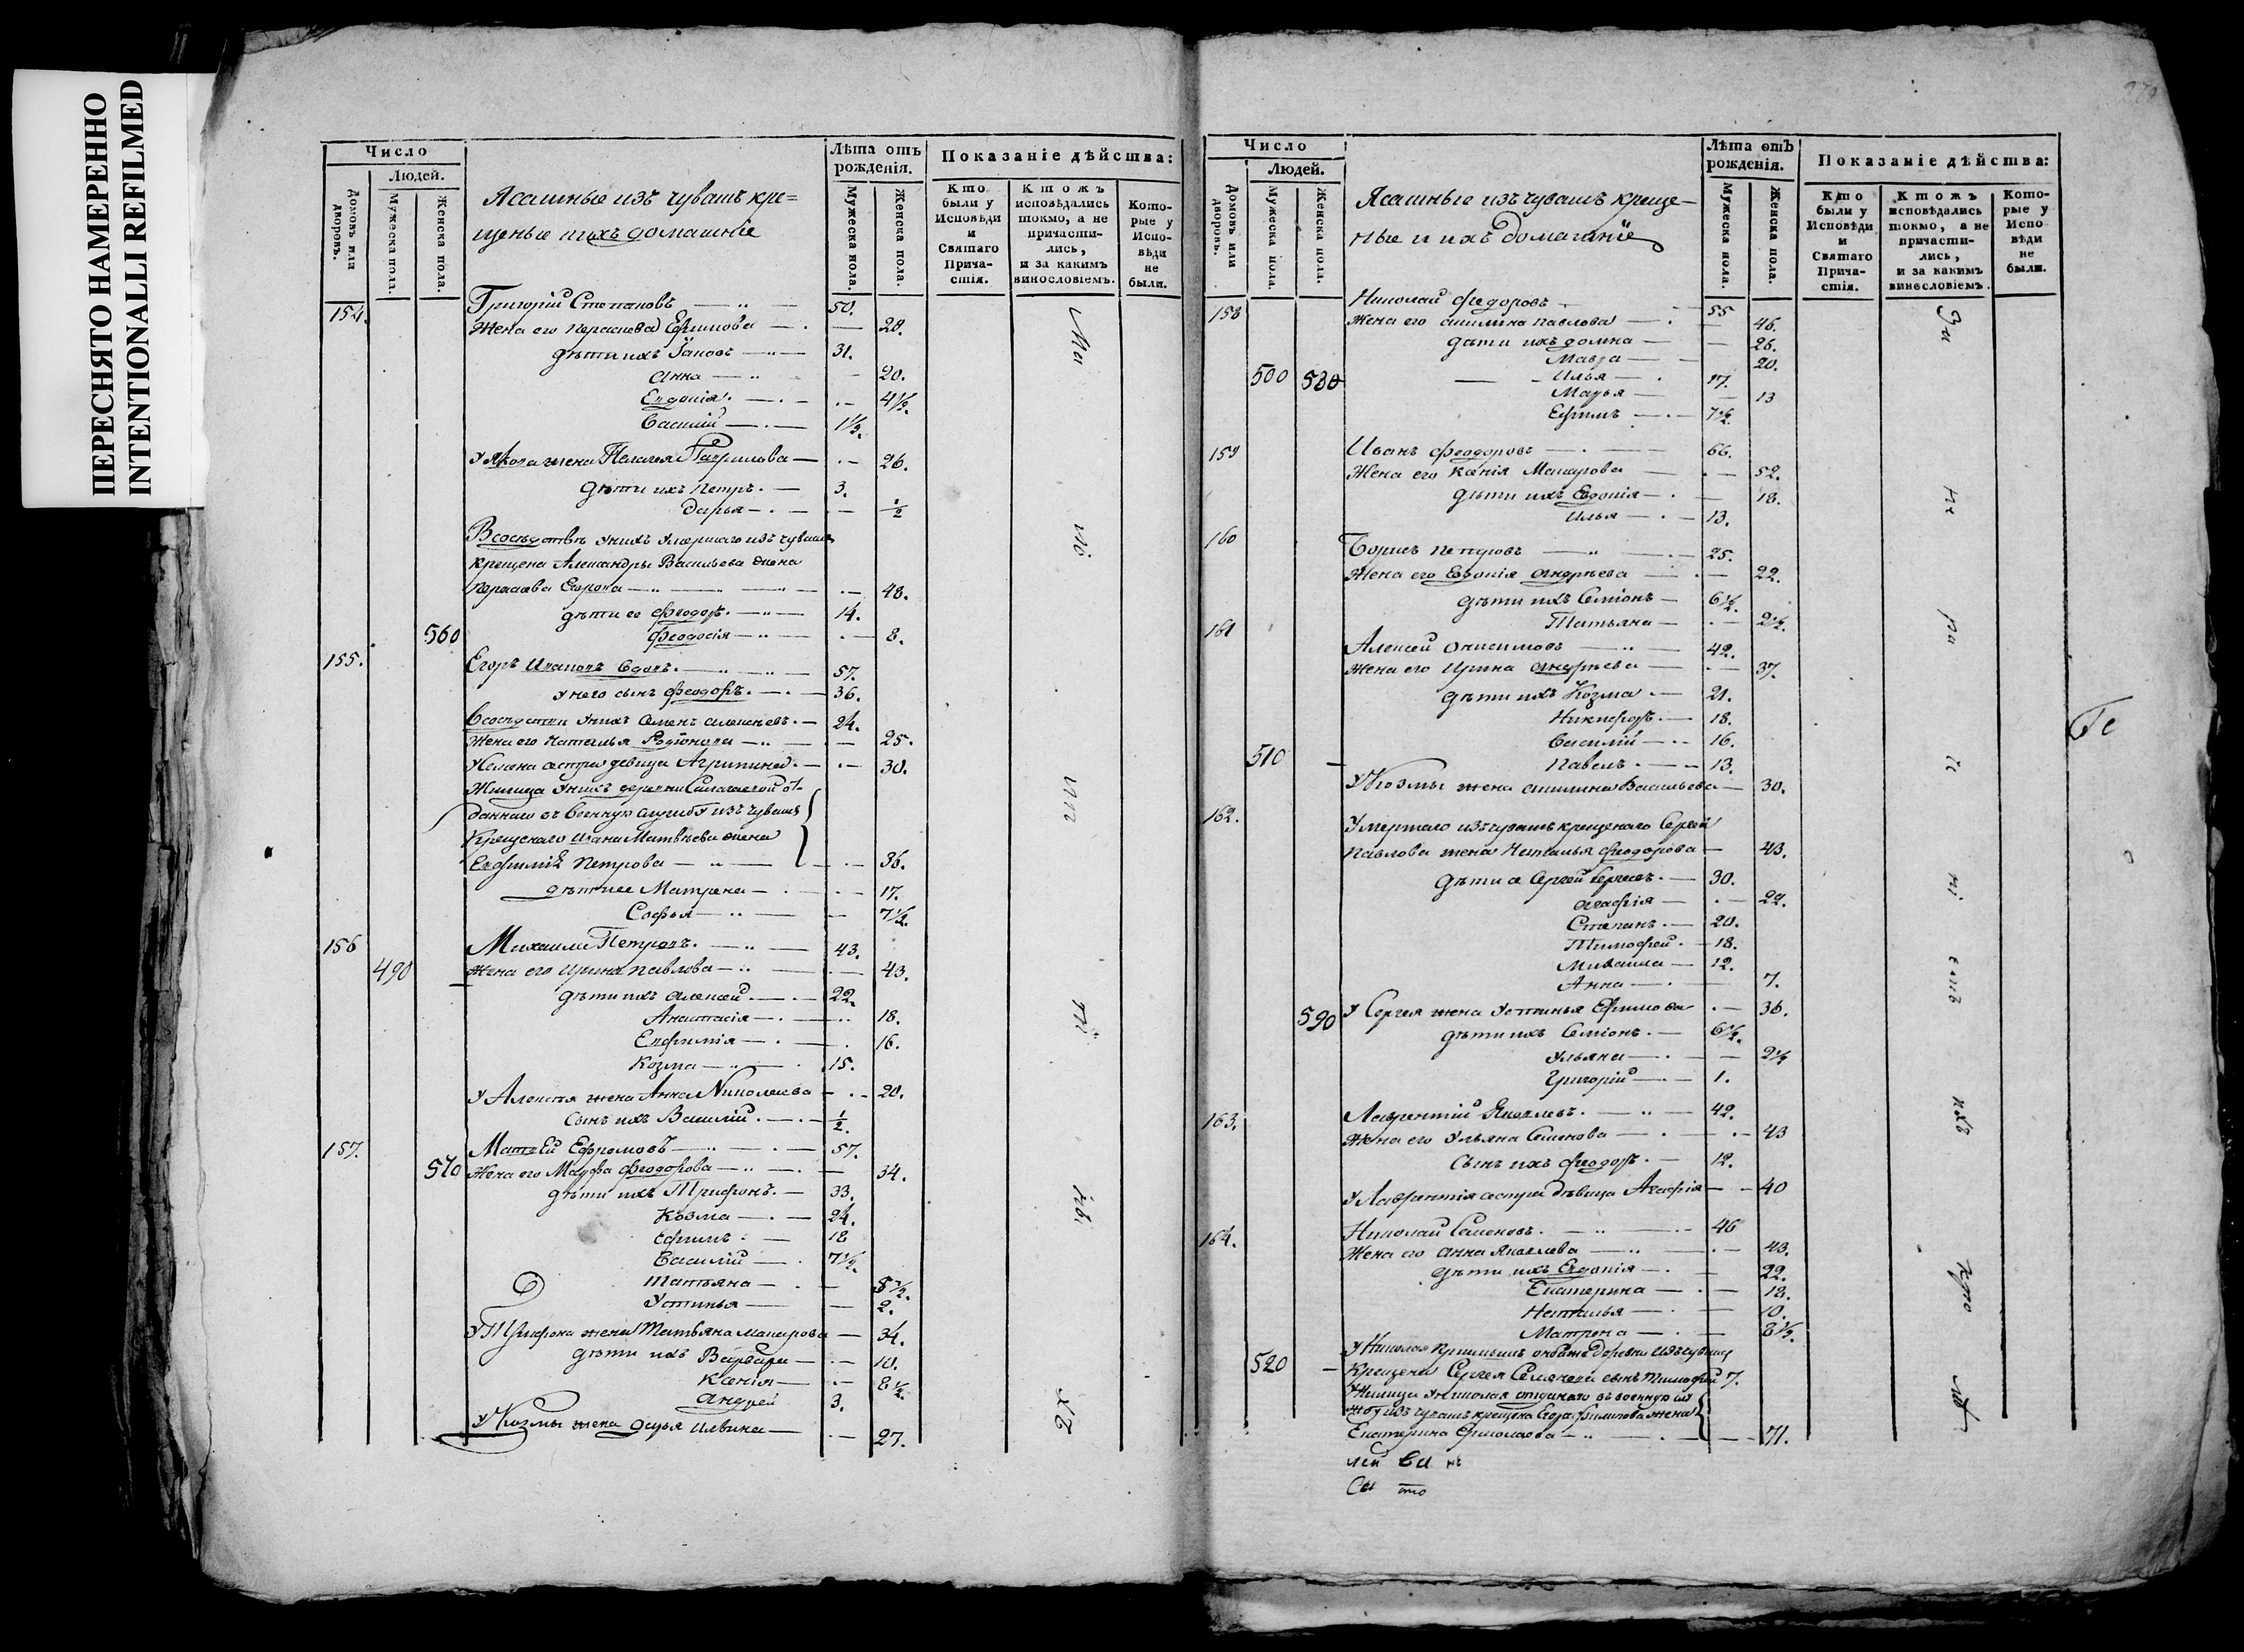 ПЕРЕСНЯТО НАМЕРЕННО
INTENTIONALLI REFILMED
Число
Людей.
Домовъ или дворовъ.
Мужеска пола.
Женска пола.
Ясашные изъ чувашъ кре=
щеные и ихъ домашніе
Лѣта отъ рожденія.
Мужеска пола.
Женска пола.
Показаніе дѣйства:
Кто были у Исповѣди и Святаго Прича-стія.
Ктожъ исповѣдались токмо, а не причасти-лись, и за какимъ винословіемъ.
Кото-рые у Испо-вѣди не были.
154. Григорій Степановъ — 50.
Жена его Параскева Ефимова — 28.
дѣти ихъ Іаковъ — 31.
Анна — 20.
Евдокія — 4 1/2.
Василий — 1 1/2.
У Якова жена Пелагея Гаврилова — 26.
дѣти ихъ Петръ — 3.
Дарья — 1/2
Всосѣдствѣ унихъ умершаго изъ чувашъ
крещена Александры Васильева жена
Параскева Егорова — 48.
дѣти ее Феодоръ — 14.
560 Феодосія — 8.
155. Егоръ Ивановъ вдовъ — 57.
у него сынъ Феодоръ — 36.
Всосѣдствѣ унихъ Семенъ Алексѣевъ — 24.
Жена его Наталья Родіонова — 25.
сестра девица Агрипина — 30.
Жилица унихъ деревни
даннаго въ военную службу изъ чувашъ
Крещенаго Ивана Матвѣева жена
Евфимія Петрова — 36.
дѣти ее Матрена — 17.
Софья — 7 1/2.
156 Михаила Петровъ — 43.
490 Жена его Ирина Павлова — 43.
дѣти ихъ Алексей — 22.
Анастасія — 18.
Евфимія — 16.
Козма — 15.
У Алексѣя жена Анна Николаева — 20.
Сынъ ихъ Василій — 1/2.
157. Матвей Ефремовъ — 57.
570 Жена его Марфа Феодорова — 34.
дѣти ихъ Трифонъ — 33.
Козма — 24.
Ефимъ — 18
Василій — 7 1/2.
Татьяна — 5 1/2.
Устинья — 2.
У Трифона жена Татьяна Макарова — 34.
дѣти ихъ Варвара — 10.
Ксенія — 8 1/2.
Андрей 3.
У Козмы жена Дарья Ильина — 27.
Число
Людей.
Домовъ или дворовъ.
Мужеска пола.
Женска пола.
Ясашные изъ чувашъ креще-
ные и ихъ домашніе
Лѣта отъ рожденія.
Мужеска пола.
Женска пола.
Показаніе дѣйства:
Кто были у Исповѣди и Святаго Прича-стія.
Ктожъ исповѣдались токмо, а не причасти-лись, и за какимъ винословіемъ.
Кото-рые у Испо вѣди не были.
158 Николай Федоровъ — 55
Жена его Акилина Павлова — 46.
дѣти ихъ Домна — 26.
Мавра — 20.
500 580 Илья — 17.
Марья — 13
Ефимъ — 7 1/2.
159 Иванъ Феодоровъ — 66.
Жена его Ксенія Макарова — 52.
дѣти ихъ Евдокія — 18.
Илья — 13.
160 Борисъ Петровъ — 25.
Жена его Евдокія Андрѣева — 22.
дѣти ихъ Семіонъ — 6 1/2.
Татьяна — 2 1/2.
161 Алексей Онисимовъ — 42.
Жена его Ирина Андрѣева — 37.
дѣти ихъ Козма — 21.
Никифоръ — 18.
Василій — 16.
510 Павелъ — 13.
У Козмы жена Акилина Васильева — 30.
162. Умершаго изъ чувашъ крещенаго Сергея
Павлова жена Наталья Феодорова — 43.
дѣти ее Сергей — 30.
Агафія — 22.
Степанъ — 20.
Тимофей — 18.
Михаила — 12.
Анна — 7.
590 У Сергея жена Устинья Ефимова — 36.
дѣти ихъ Семіонъ — 6 1/2.
Ульяна — 2 1/2
Григорій — 1.
163. Лаврентий Яковлевъ — 42.
Жена его Ульяна Семенова — 43
Сынъ ихъ Феодоръ — 12.
У Лаврентія сестра дѣвица Агафія — 40
164. Николай Семеновъ — 46
Жена его Анна Яковлева — 43.
дѣти ихъ Евдокія — 22.
Екатерина — 18.
Наталья — 10.
Матрена — 8 1/2.
У Николая деревни изъ чувашъ
520 Крещена Сергея сынъ Тимофей 7.
Жилица у Николая отданаго въ военную сл
жбу изъ чувашъ крещена Егора Филипова жена
Екатерина Ермолаева — 71.
Ге